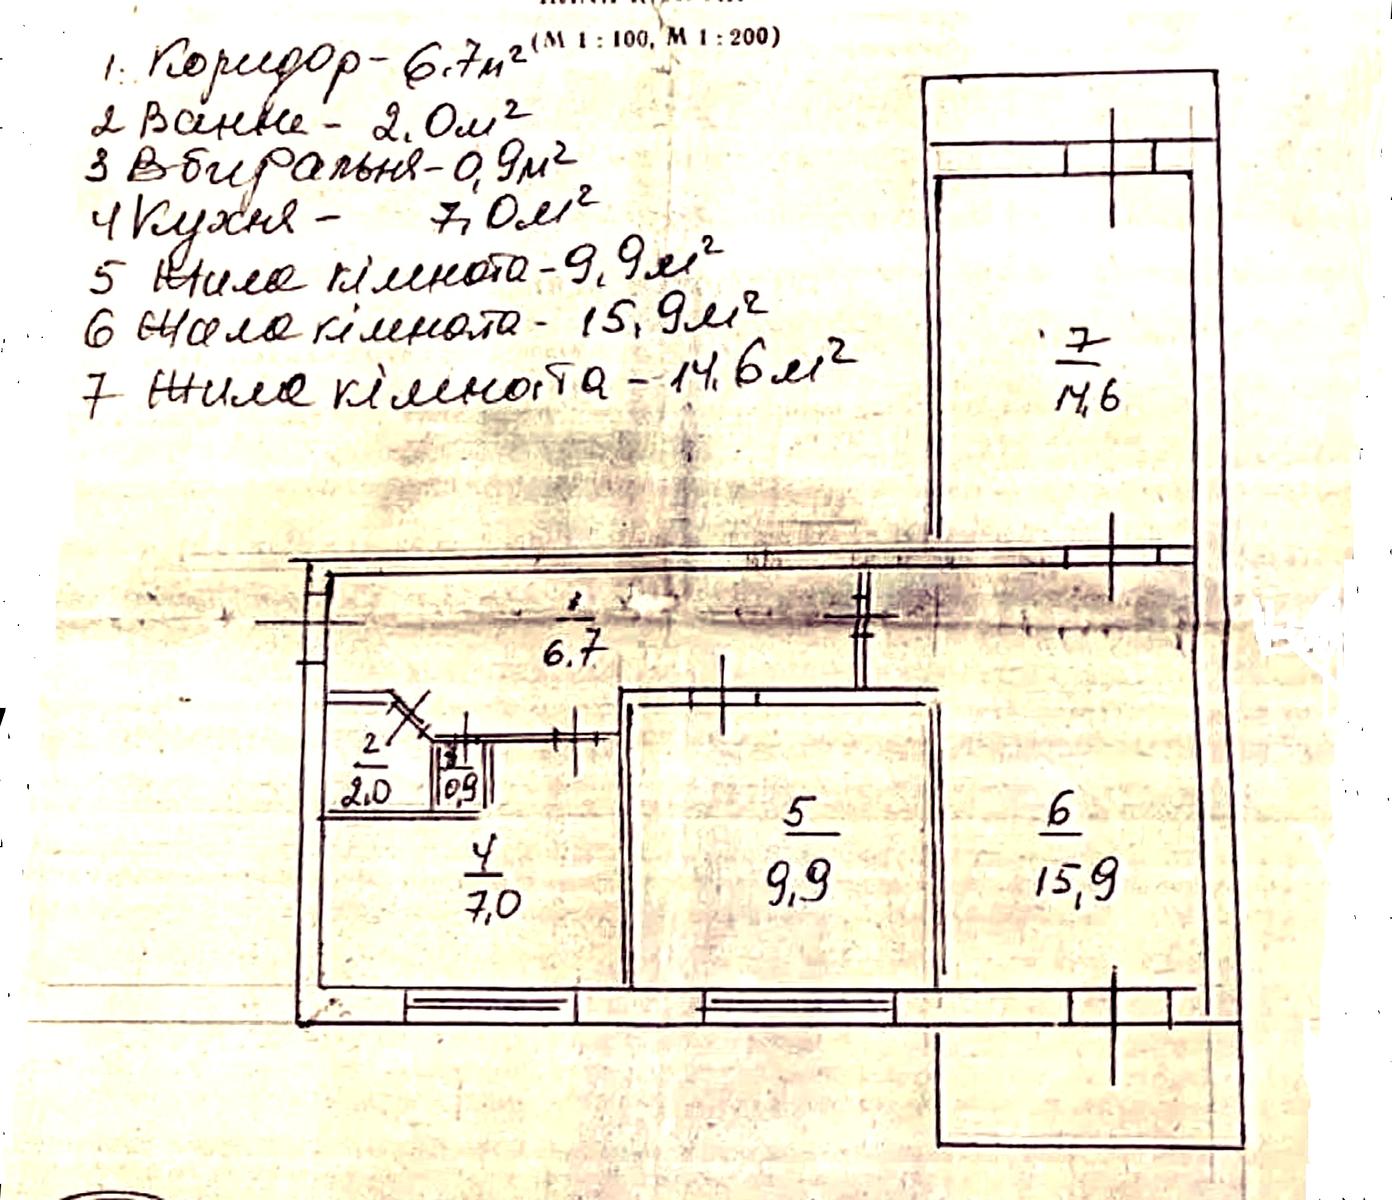 (М 1 : 100, М 1 : 200)
1. Коридор - 6.7м²
2 Ванна - 2.0м²
3 Вбиральня - 0,9м²
4 Кухня - 7,0м²
5 Жила кімната - 9,9м²
6 Жила кімната - 15,9м²
7 Жила кімната - 14,6м²
7
14,6
1
6.7
2
2.0
3
0,9
4
7,0
5
9,9
6
15,9